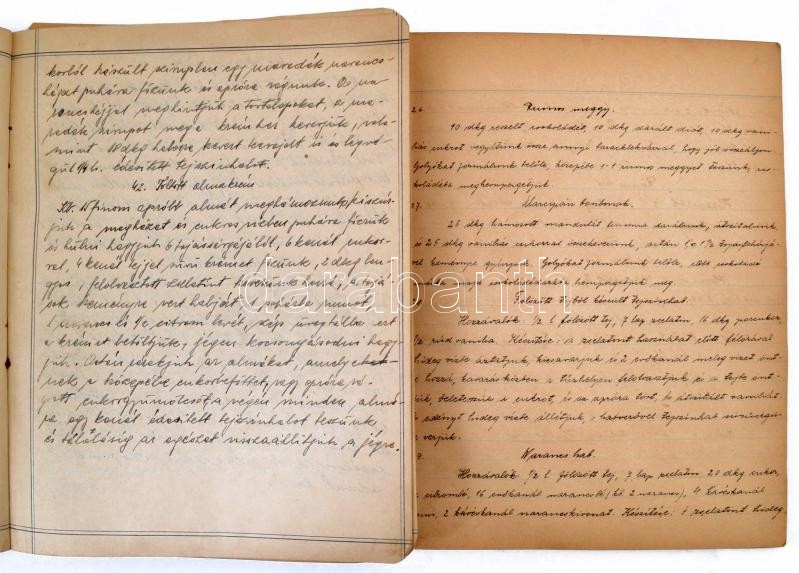 korból készült szirupban egy maradék narancs-
héjat puhára főzünk és apróra vágunk. Ös na-
rancshéjjal meghintjük a tortalapokat, a ma-
radék szirupot vége krémhez keverjük, vala-
mint 18 dkg habosra kevert teavajat is és legvé-
gül 1/4 l. édesített tejszínhabot.
42. Töltött almakrém
Kb. 10 finom apróbb almát meghámozunk, kiszúr-
juk a magházat és cukros vízben puhára főzzük
és hűlni hagyjuk 6 tojássárgájából, 6 kanál cukor-
ral, 4 kanál tejjel sűrű krémet főzünk, 2 dkg
felolvasztott zselatint teszünk bele, a tojá-
sok keményre vert habját, 1 pohárka rumot
1 narancs és 1/2 citrom levét, szép üvegtálba ezt
a krémet betöltjük, jégen kocsonyásodni hagy-
juk. Aztán rárakjuk az almákat, amelyek-
nek a közepébe cukorbefőttet, vagy apróra vá-
gott cukorgyümölcsöt a végén minden almá-
ra egy kanál édesített tejszínhabot teszünk
és tálalásig az egészet visszaállítjuk a jégre.
26. Rumos meggy.
10 dkg reszelt csokoládét, 10 dkg darált diót, 10 dkg vaní-
liás cukrot vegyítünk össze annyi baracklekvárral, hogy jól összeálljon
golyókat formálunk belőle, közepébe 1-1 rumos meggyet teszünk, cso-
koládéba meghempergetjük.
27. Marcipán bonbonok.
25 dkg hámozott mandulát finomra darálunk, átszitálunk
és 25 dkg vaníliás cukorral összekeverünk, aztán 1 v. 1 1/2 tojásfehérjé-
vel keményre gyúrjuk. Golyókat formálunk belőle, előbb csokoládé
mázba majd csokoládédarába hempergetjük meg.
Fölözött tejből készült tejszínhab.
Hozzávalók: 1/2 l fölözött tej, 7 lap zselatin, 16 dkg porcukor,
1/2 rúd vanília. Készítése: a zselatint használat előtt félórával
hideg vízbe áztatjuk, kicsavarjuk és 2 evőkanál meleg vizet önt-
hozzá, kavarás közben a tűzhelyen felolvasztjuk és a tejbe önt-
jük, beletesszük a cukrot, és az apróra tört, és átszitált vaníliát
edényt hideg vízbe állítjuk, habverővel tejszínhab sűrűségű-
re verjük.
9. Narancs hab.
Hozzávalók: 1/2 l. fölözött tej, 7 lap zselatin, 20 dkg cukor,
citromlé, 16 evőkanál narancslé (kb. 2 narancs), 4 kávéskanál
rum, 2 kávéskanál narancskivonat. Készítése: A zselatint hideg
darabanth